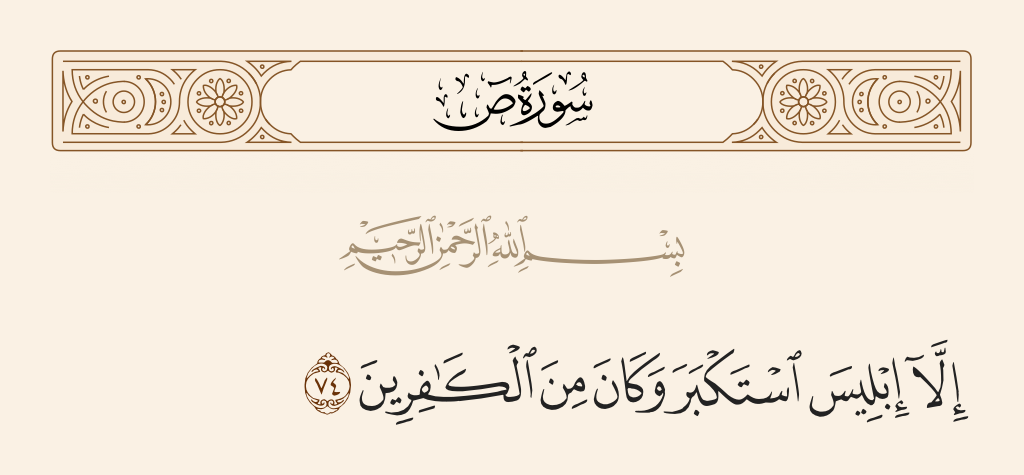 سُورَةُ صٓ
بِسْمِ ٱللَّهِ ٱلرَّحْمَٰنِ ٱلرَّحِيمِ
إِلَّآ إِبْلِيسَ ٱسْتَكْبَرَ وَكَانَ مِنَ ٱلْكَـٰفِرِينَ ٧٤